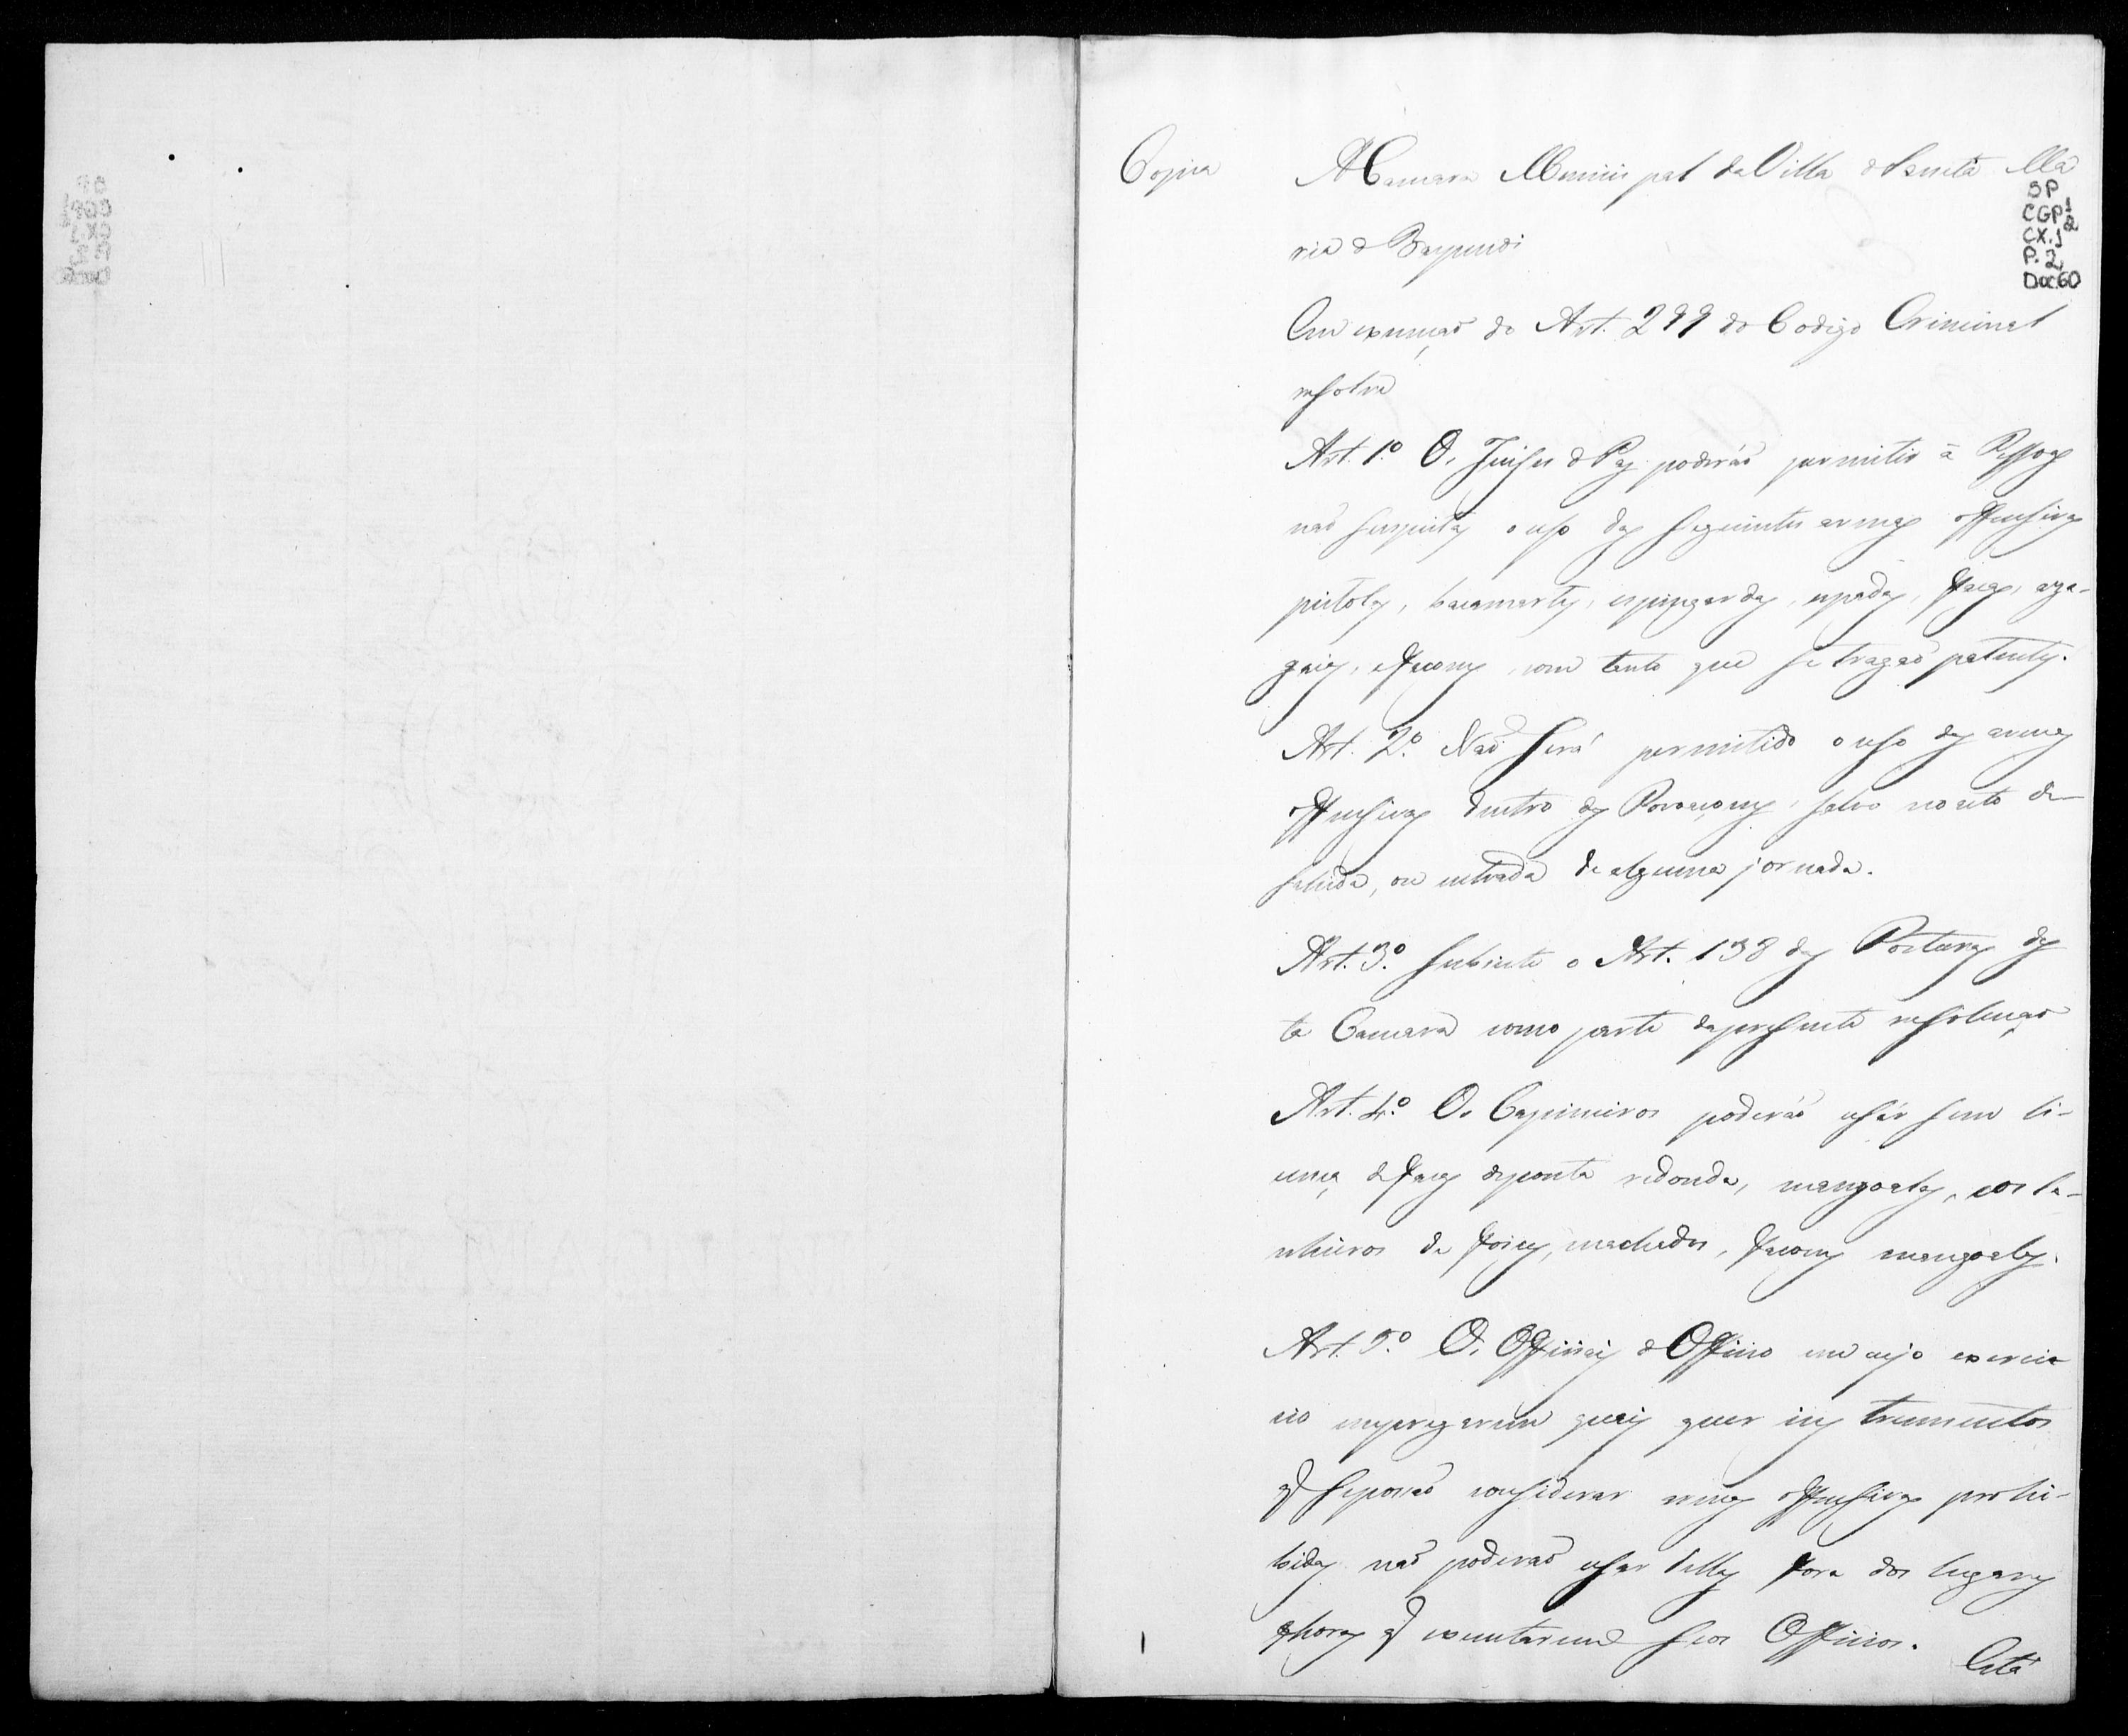 Copia
A Camara Municipal da Villa de Santa Ma
SP
CGP 1/2
CX. 1
P. 2
Doc. 60
ria de Baependi
Em execução do Art. 299 do Codigo Criminal
resolve
Art. 1.º Os Juises de Paz poderáõ permitir á Pessoas
não suspeitas o uso das seguintes armas offensivas
pistolas, bacamartes, espingardas, espadas, facas, aza-
gaias, e facoens, com tanto que se tragaõ patentes.
Art. 2.º Naõ será permitido o uso das armas
offensivas dentro das Povoaçoens, salvo no acto da
sahida, ou entrada de alguma jornada.
Art. 3.º Subsiste o Art. 138 das Posturas des
ta Camara como parte da presente resoluçaõ
Art. 4.º Os Capineiros poderáõ usár sem li-
cença de facas de ponta redonda, mangoaes, e os le-
nheiros de foices, machados, facoens mangoaes.
Art. 5.º Os Officiaes de Officio em cujo exerci
cio empregarem quaes quer ins trumentos
q se possaõ considerar armas offensivas prohi-
bidas naõ poderaõ usar dellas fora dos lugares
e horas q executarem seos Officios.
Esta